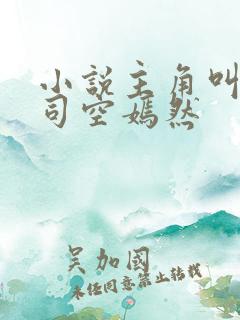 小说主角叫
司空嫣然
吴加國
未任同意禁止转载